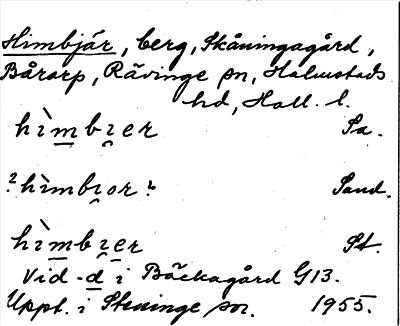 Himbjär, berg, Skåningagård,
Bårarp, Rävinge sn, Halmstads
hd, Hall. l.
hìmbi̯er Sa.
?hìmbi̯or? Sand.
hìmbi̯er St.
Vid -d i Bäckagård G13.
Uppt. i Steninge sn. 1955.